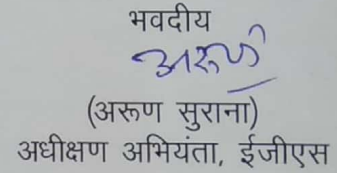 भवदीय
अरुण
(अरूण सुराना)
अधीक्षण अभियंता, ईजीएस